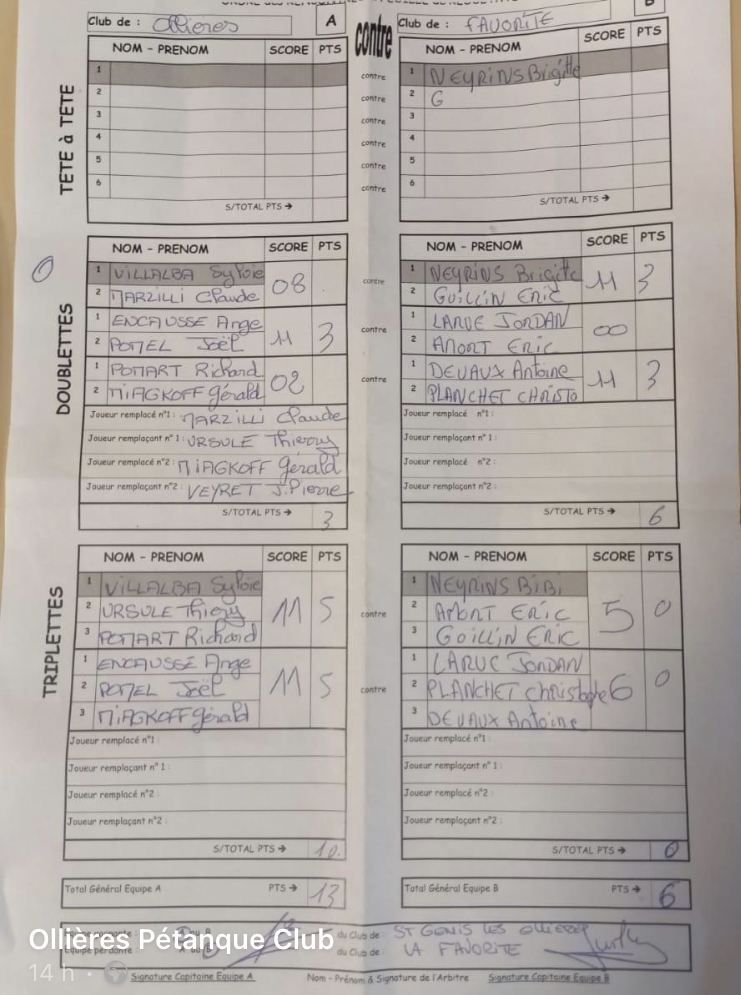 Club de : Ollieres A contre Club de : FAVORITE B
TÊTE à TÊTE
NOM - PRENOM SCORE PTS NOM - PRENOM SCORE PTS
1 contre 1 NEYRINS Brigitte
2 contre 2 G
3 contre 3
4 contre 4
5 contre 5
6 contre 6
S/TOTAL PTS → S/TOTAL PTS →
0
DOUBLETTES
NOM - PRENOM SCORE PTS NOM - PRENOM SCORE PTS
1 VILLALBA Sylvie 08 contre 1 NEYRINS Brigitte 11 3
2 MARZILLI Claude 2 GUILLIN ERIC
1 ENCAUSSE Ange 11 3 contre 1 LARUE JORDAN 00
2 POMEL Joël 2 AMORT ERIC
1 POMART Richard 02 contre 1 DEVAUX Antoine 11 3
2 MIAGKOFF Gérald 2 PLANCHET CHRISTO
Joueur remplacé n°1 : MARZILLI Claude Joueur remplacé n°1 :
Joueur remplaçant n° 1 : URSULE Thierry Joueur remplaçant n° 1 :
Joueur remplacé n°2 : MIAGKOFF Gérald Joueur remplacé n°2 :
Joueur remplaçant n°2 : VEYRET J.Pierre Joueur remplaçant n°2 :
S/TOTAL PTS → 3 S/TOTAL PTS → 6
TRIPLETTES
NOM - PRENOM SCORE PTS NOM - PRENOM SCORE PTS
1 VILLALBA Sylvie 11 5 contre 1 NEYRINS BiBi 5 0
2 URSULE Thierry 2 AMORT ERIC
3 POMART Richard 3 GOILLIN ERIC
1 ENCAUSSE Ange 11 5 contre 1 LARUE JORDAN 6 0
2 POMEL Joël 2 PLANCHET Christophe
3 MIAGKOFF Gérald 3 DEVAUX Antoine
Joueur remplacé n°1 : Joueur remplacé n°1 :
Joueur remplaçant n° 1 : Joueur remplaçant n° 1 :
Joueur remplacé n°2 : Joueur remplacé n°2 :
Joueur remplaçant n°2 : Joueur remplaçant n°2 :
S/TOTAL PTS → 10 S/TOTAL PTS → 0
Total Général Equipe A PTS → 13 Total Général Equipe B PTS → 6
A ou B du Club de : ST GENIS LES OLLIERES
Equipe perdante : A ou B du Club de : LA FAVORITE
Ollières Pétanque Club
14 h ·
Signature Capitaine Equipe A Nom - Prénom & Signature de l'Arbitre Signature Capitaine Equipe B